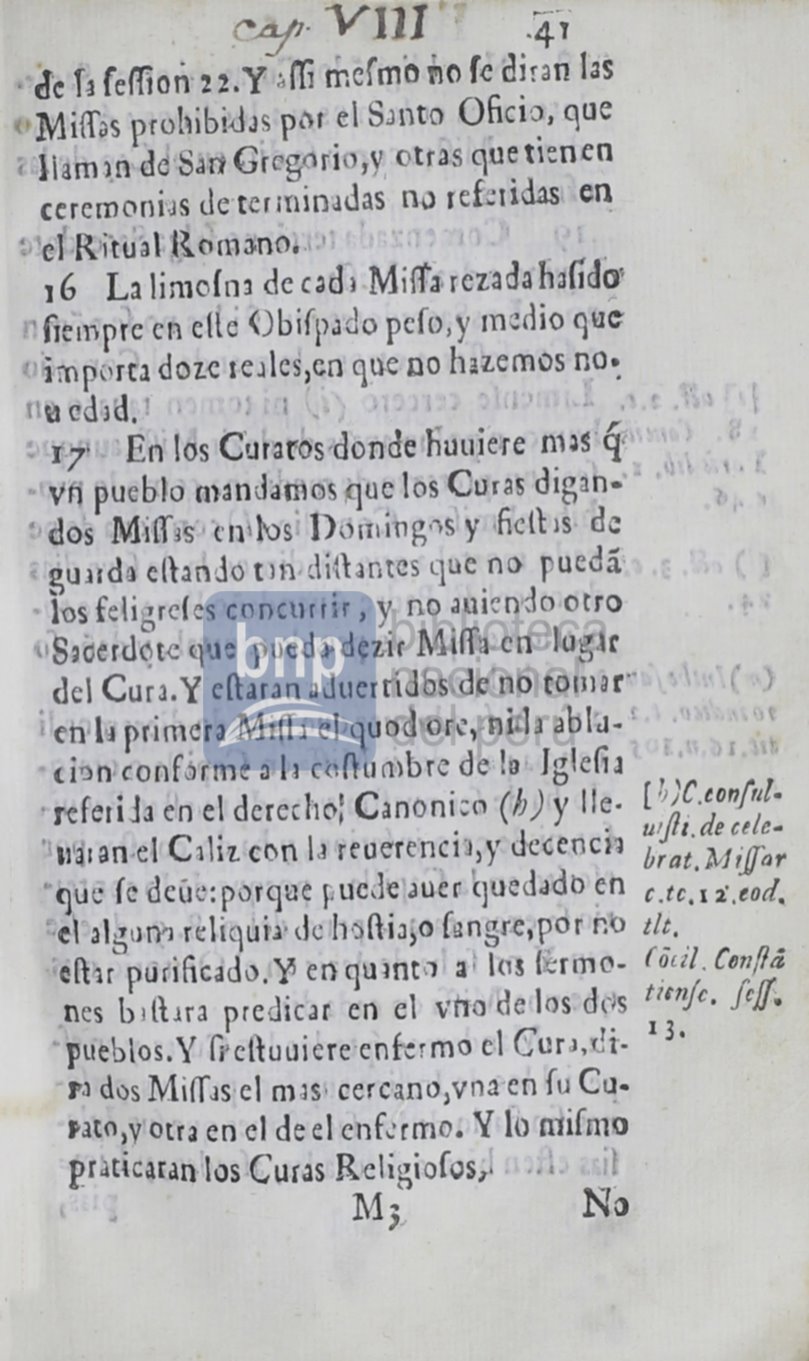 cap. VIII 41
de la sessiõn 22. Y assi mesmo no se diran las
Missas prohibidas por el Santo Oficio, que
llaman de San Gregorio, y otras que tienen
ceremonias determinadas no referidas en
el Ritual Romano.
16 La limosna de cada Missa rezada ha sido
siempre en este Obispado peso, y medio que
importa doze reales, en que no hazemos no-
uedad.
17 En los Curatos donde huuiere mas q̃
vn pueblo mandamos que los Curas digan
dos Missas en los Domingos y fiestas de
guarda estando tan distantes que no puedã
los feligreses concurrir, y no auiendo otro
Sacerdote que pueda dezir Missa en lugar
del Cura. Y estaran aduertidos de no tomar
en la primera Missa el quod ore, ni la ablu-
cion conforme a la costumbre de la Iglesia
referida en el derecho Canonico (h) y lle-
uaran el Caliz con la reuerencia, y decencia
que se deue: porque puede auer quedado en
el alguna reliquia de hostia, o sangre, por no
estar purificado. Y en quanto a los sermo-
nes bastara predicar en el vno de los dos
pueblos. Y si estuuiere enfermo el Cura, di-
ra dos Missas el mas cercano, vna en su Cu-
rato, y otra en el de el enfermo. Y lo mismo
praticaran los Curas Religiosos,
M3 No
[h) C. consul-
uisti. de cele-
brat. Missar
c. te. 12. eod.
tlt.
Cõcil. Constã
tiense. sess.
13.
bnp biblioteca
nacional
del perú